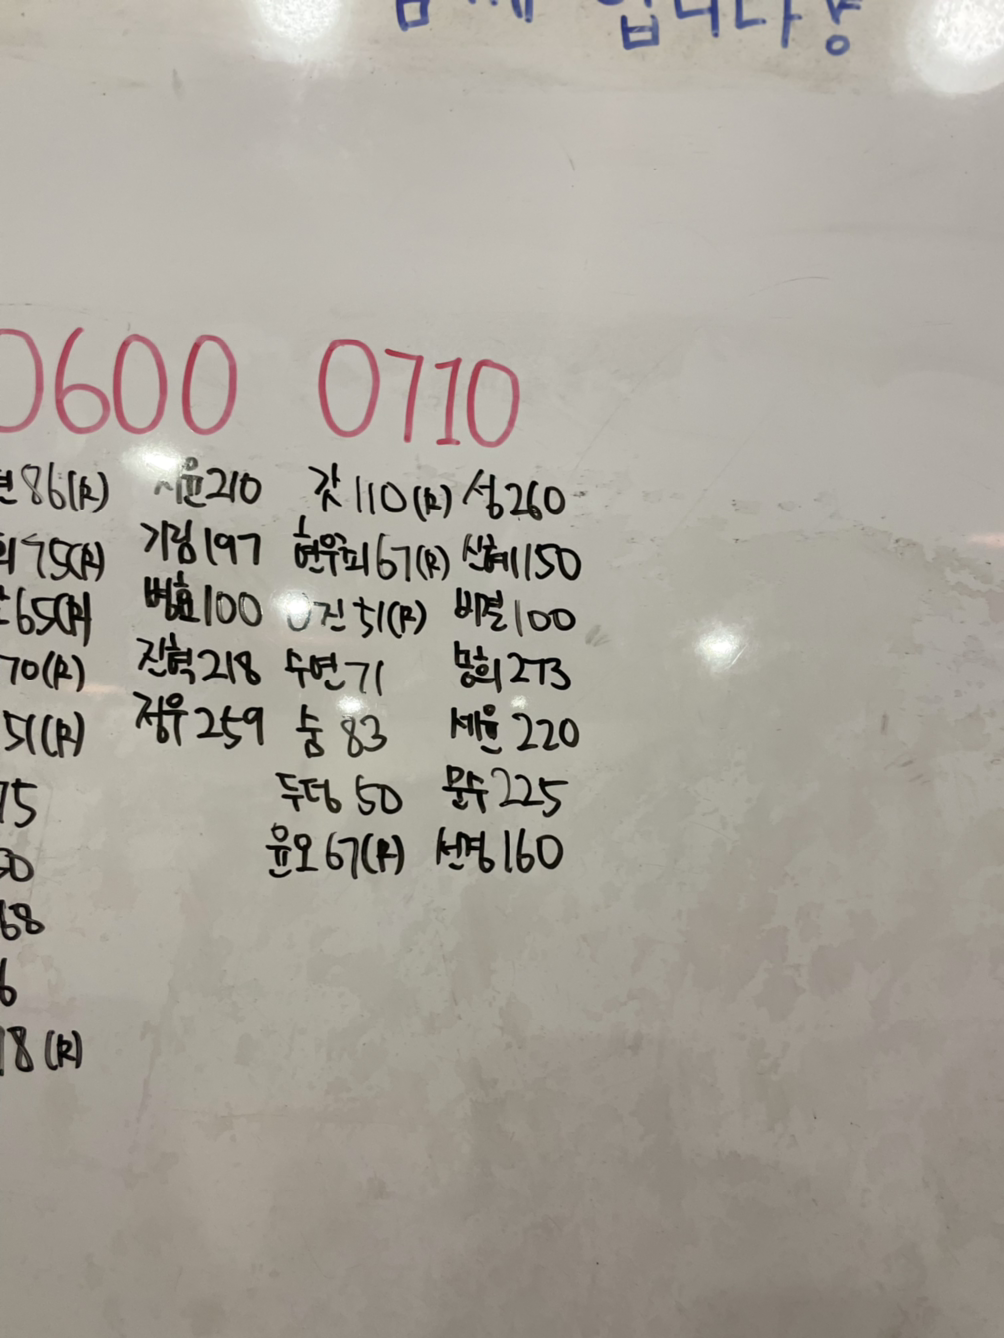 입니다용
0600 0710
86(R) 윤210 갓110(R) 성260
75(R) 기림197 현우피67(R) 신혜150
65(R) 병효100 진51(R) 비결100
70(R) 진혁218 수연71 몽희273
51(R) 정우259 숨83 세윤220
75 두덩50 문수225
50 윤오67(R) 선명160
68
6
18(R)